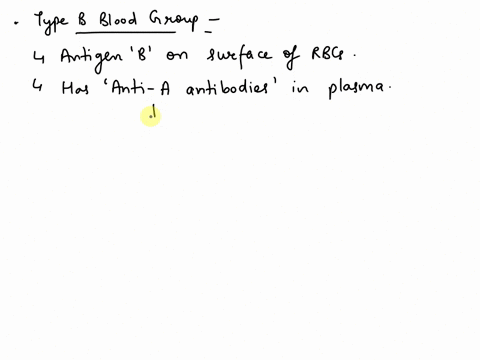 . Type B Blood Group –
↳ Antigen 'B' on surface of RBCs.
↳ Has 'Anti-A antibodies' in plasma.